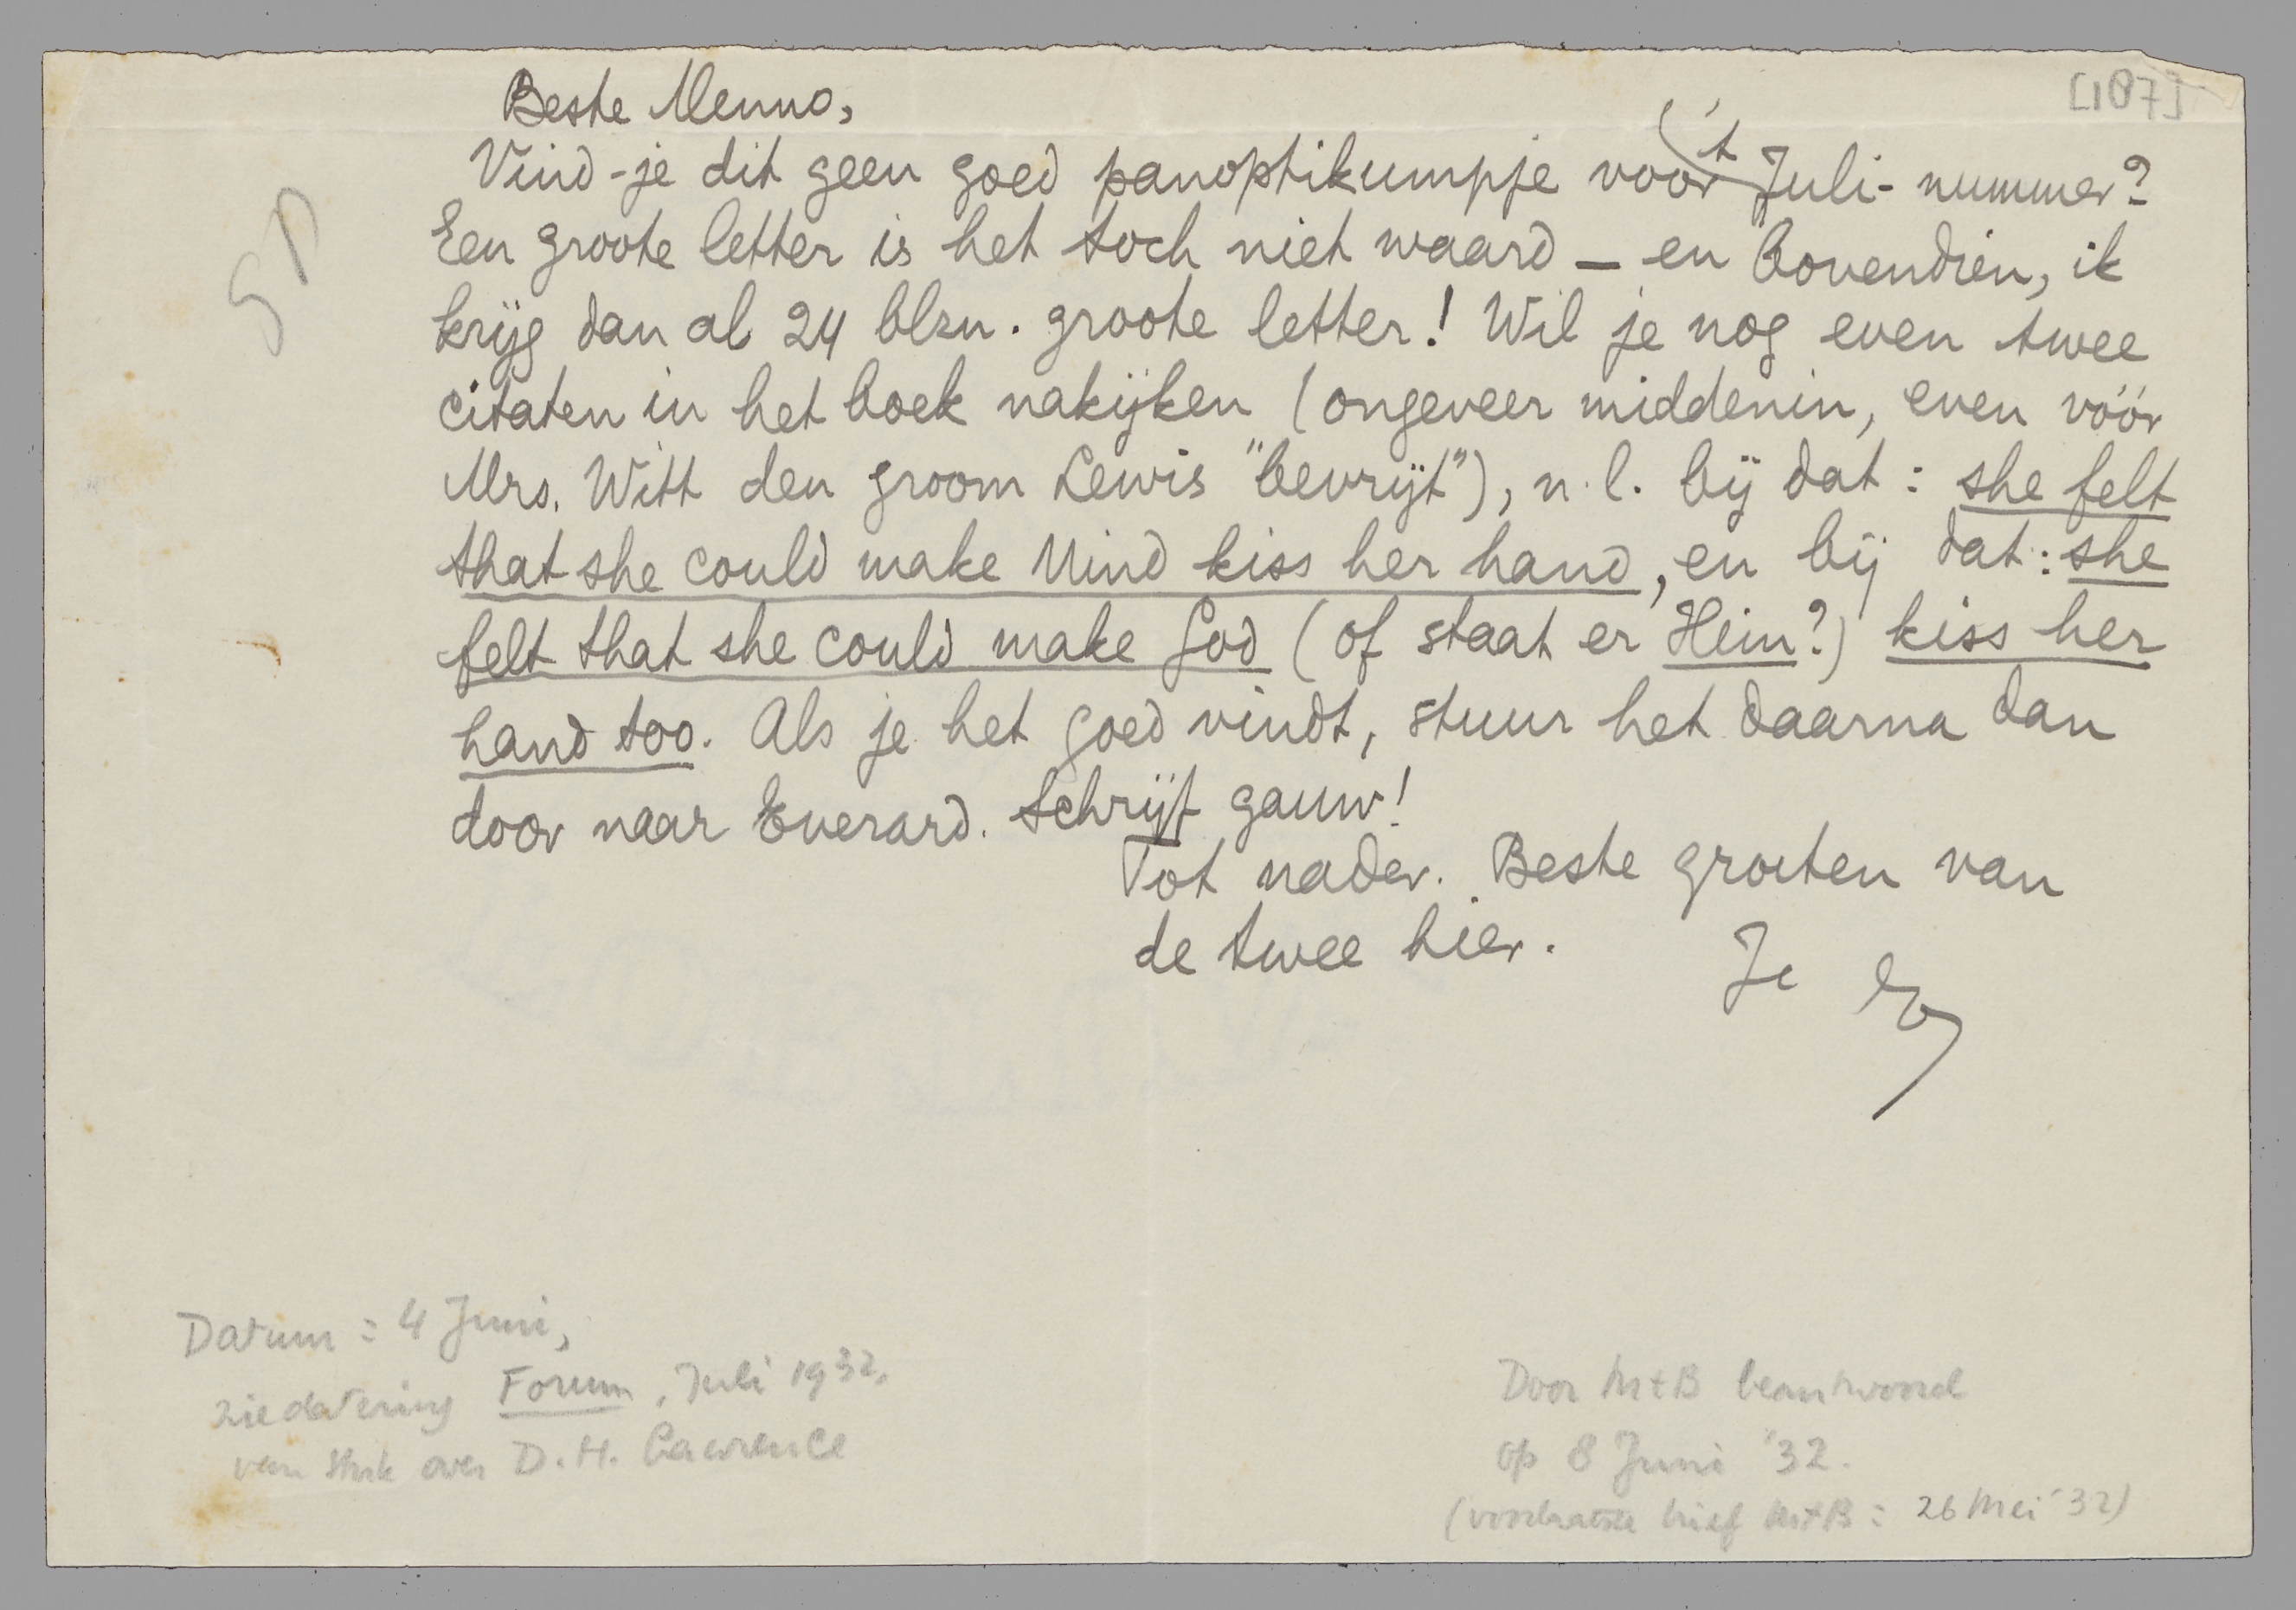 [187]
Beste Menno,
Vind-je dit geen goed panoptikumpje voor 't Juli-nummer?
Een groote letter is het toch niet waard — en bovendien, ik
krijg dan al 24 blzn. groote letter! Wil je nog even twee
citaten in het boek nakijken (ongeveer middenin, even vóór
Mrs. Witt den groom Lewis "bevrijt"), n.l. bij dat: she felt
that she could make Mind kiss her hand, en bij dat: she
felt that she could make God (of staat er Him?) kiss her
hand too. Als je het goed vindt, stuur het daarna dan
door naar Everard. Schrijf gauw!
Tot nader. Beste groeten van
de twee hier.
Je E
Datum: 4 Juni,
zie datering Forum, Juli 1932,
van stuk over D.H. Lawrence
Door MtB beantwoord
op 8 Juni '32.
(voorlaatste brief MtB: 26 Mei '32)